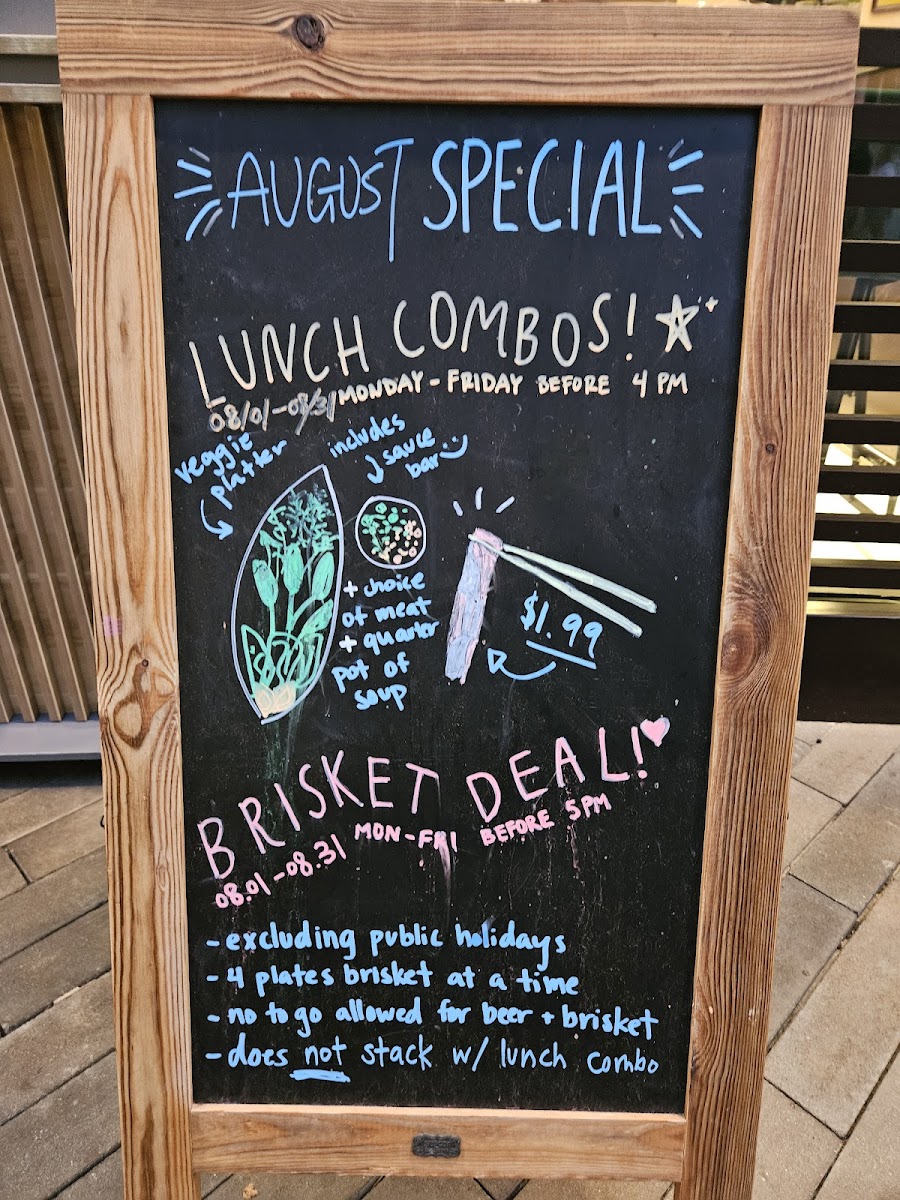 AUGUST SPECIAL
LUNCH COMBOS!
08/01-08/31 MONDAY - FRIDAY BEFORE 4 PM
veggie
platter
includes
sauce
bar
+ choice
of meat
+ quarter
pot of
soup
$1.99
BRISKET DEAL!
08.01-08.31 MON-FRI BEFORE 5PM
- excluding public holidays
- 4 plates brisket at a time
- no to go allowed for beer + brisket
- does not stack w/ lunch combo